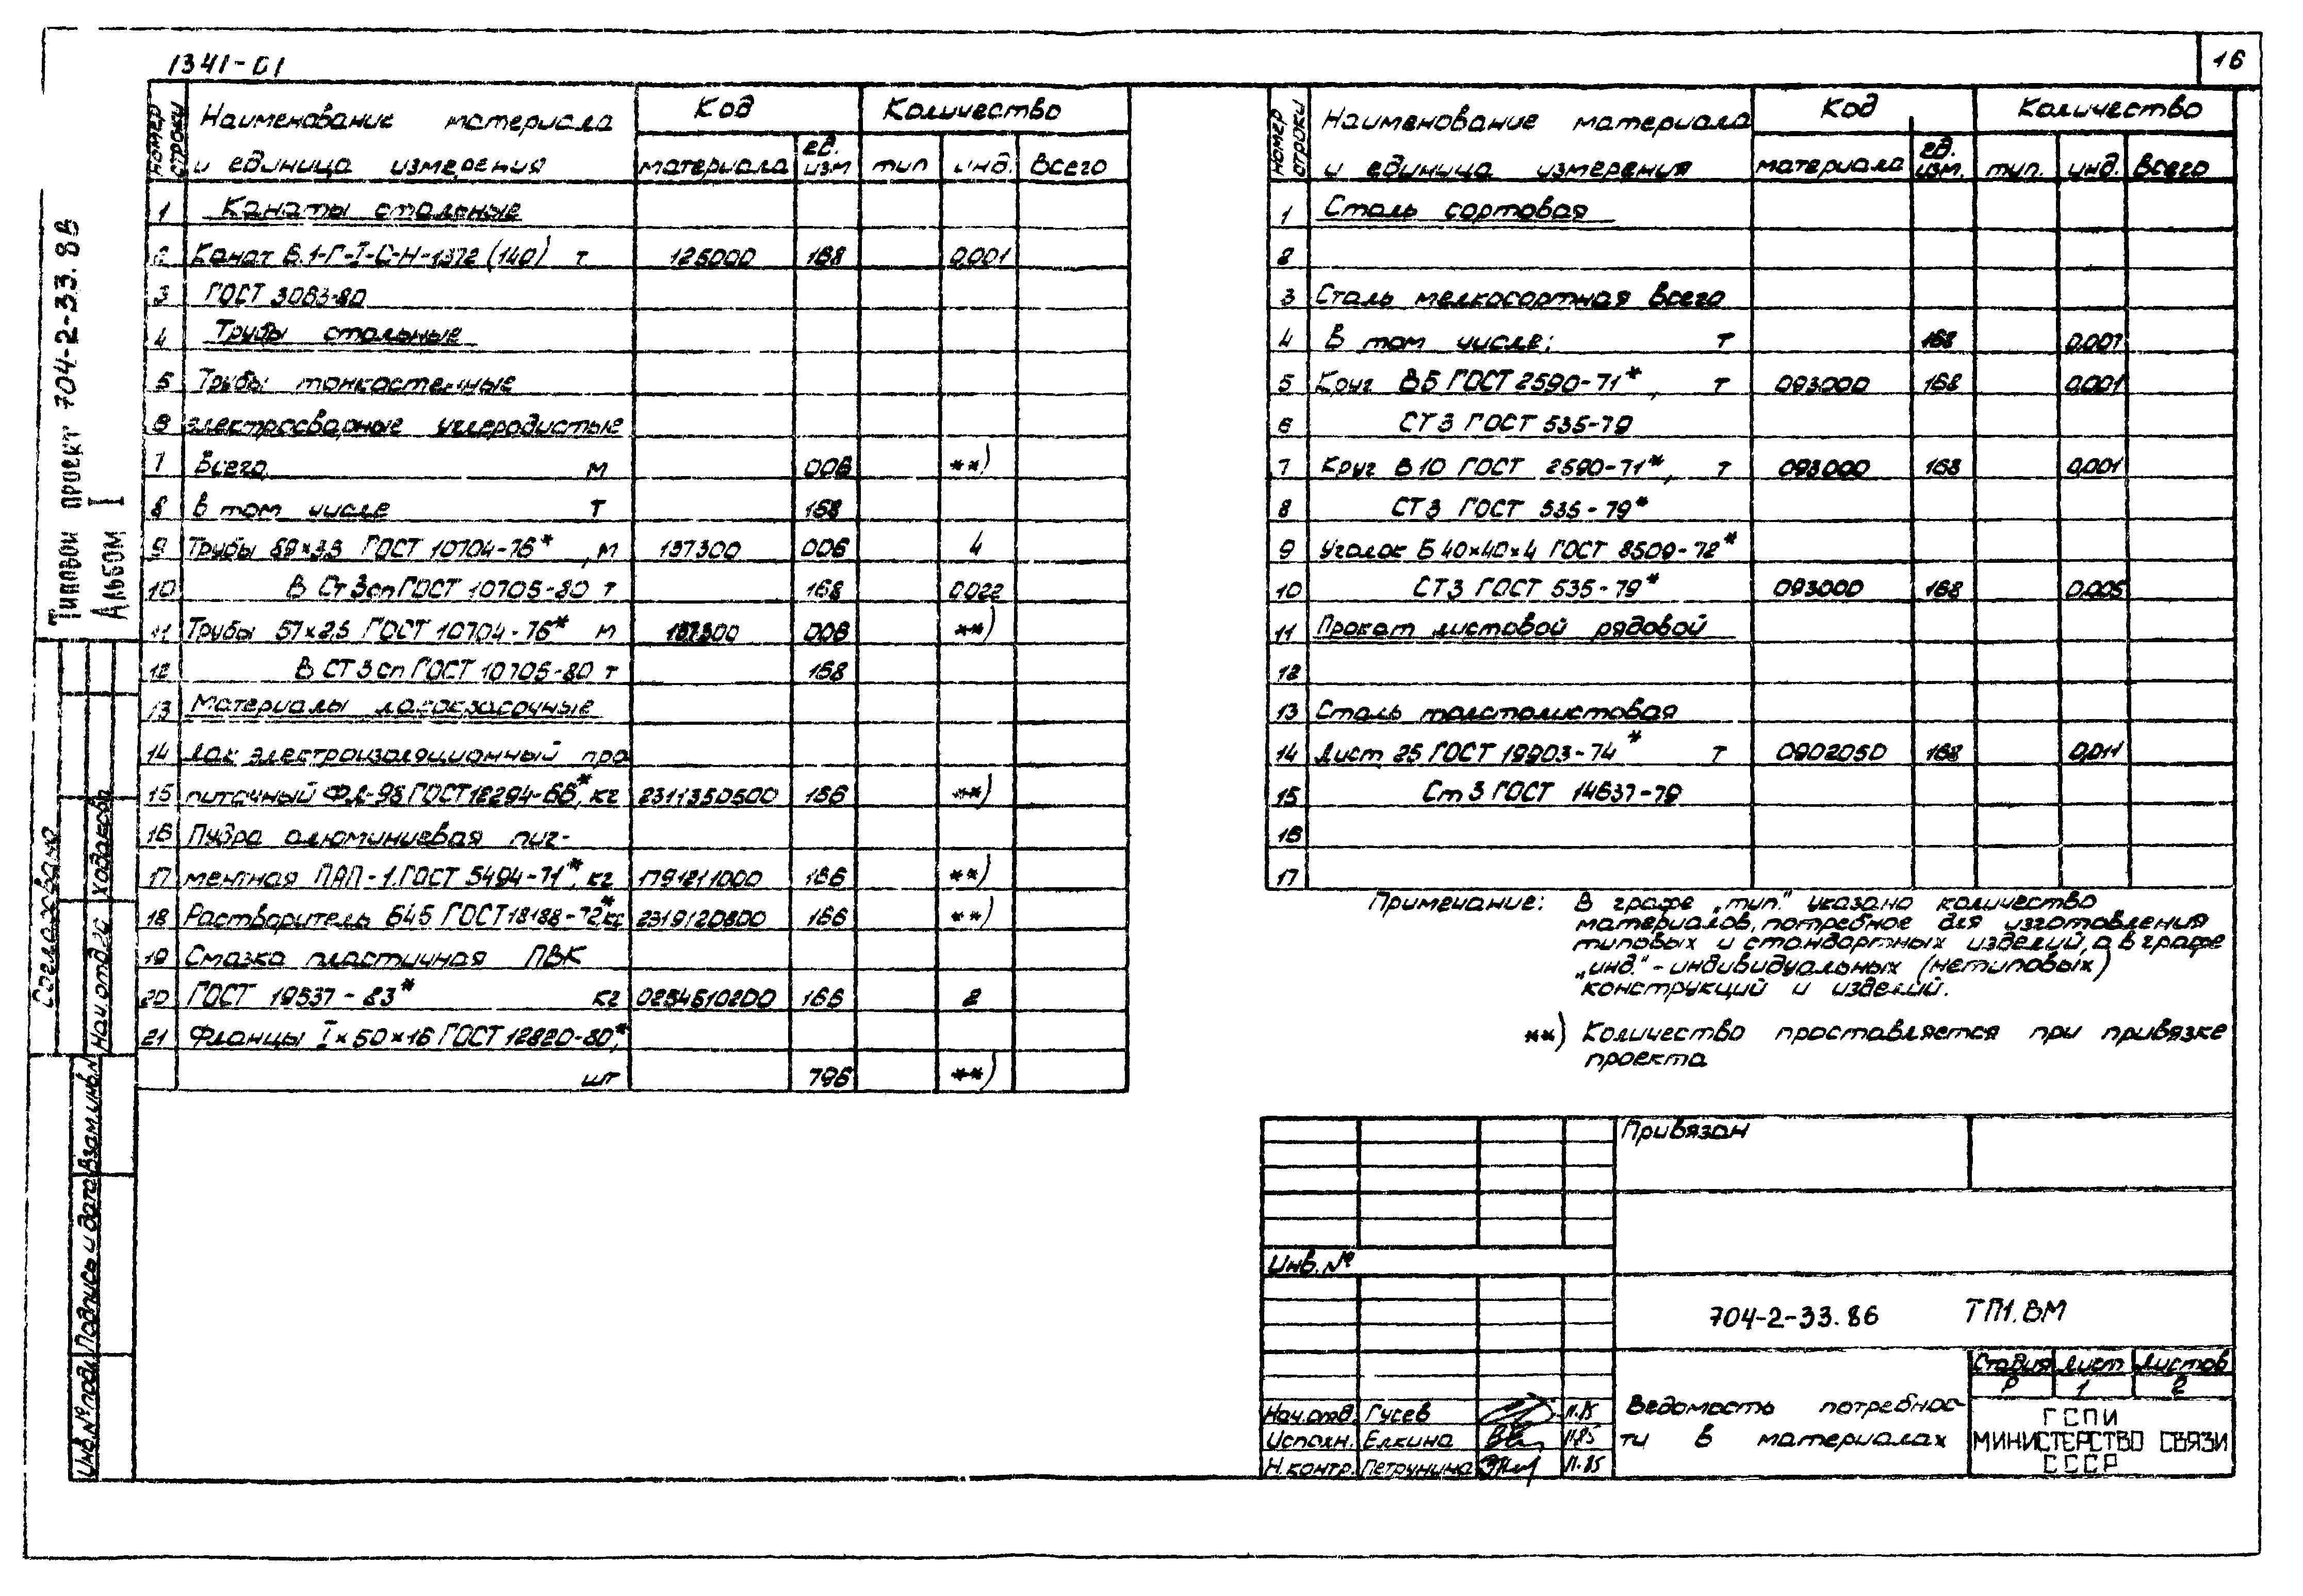 1341-01
16
Типовой проект 704-2-33.86
Альбом I
Согласовано
Нач. отд. 2С Ходаков
Инв.№ подл. Подпись и дата Взам.инв.№
Номер строки
Наименование материала и единица измерения
Код
материала
ед. изм
Количество
тип инд. Всего
1 Канаты стальные
2 Канат 6.1-Г-I-С-Н-1372 (140) т 125000 168 0,001
3 ГОСТ 3063-80
4 Трубы стальные
5 Трубы тонкостенные
6 электросварные углеродистые
7 Всего, м 006 **)
8 в том числе т 168
9 Трубы 59×3,5 ГОСТ 10704-76*, м 137300 006 4
10 В Ст3сп ГОСТ 10705-80 т 168 0,022
11 Трубы 57×2,5 ГОСТ 10704-76* м 137300 006 **)
12 В СТ3сп ГОСТ 10705-80 т 168
13 Материалы лакокрасочные
14 Лак электроизоляционный про
15 питочный ФЛ-98 ГОСТ 12294-66*, кг 2311350500 166 **)
16 Пудра алюминиевая пиг-
17 ментная ПАП-1. ГОСТ 5494-71*, кг 1791211000 166 **)
18 Растворитель 645 ГОСТ 18188-72* кг 2319120800 166 **)
19 Смазка пластичная ПВК
20 ГОСТ 19537-83* кг 0254510200 166 2
21 Фланцы I×50×16 ГОСТ 12820-80*,
шт 796 **)
Номер строки
Наименование материала и единица измерения
Код
материала
ед. изм.
Количество
тип. инд. Всего
1 Сталь сортовая
2
3 Сталь мелкосортная Всего
4 В том числе: т 168 0,007
5 Круг В5 ГОСТ 2590-71*, т 093000 168 0,001
6 СТ3 ГОСТ 535-79
7 Круг В10 ГОСТ 2590-71*, т 093000 168 0,001
8 СТ3 ГОСТ 535-79*
9 Уголок Б 40×40×4 ГОСТ 8509-72*
10 СТ3 ГОСТ 535-79* 093000 168 0,005
11 Прокат листовой рядовой
12
13 Сталь толстолистовая
14 Лист 25 ГОСТ 19903-74* т 0902050 168 0,011
15 Ст3 ГОСТ 14637-79
16
17
Примечание: В графе „тип." указано количество
материалов, потребное для изготовления
типовых и стандартных изделий, а в графе
„инд."-индивидуальных (нетиповых)
конструкций и изделий.
**) Количество проставляется при привязке
проекта
Привязан
Инв. №
704-2-33.86 ТП1.ВМ
Стадия Лист Листов
Р 1 2
Нач.отд. Гусев 11.85
Исполн. Елкина 11.85
Н.контр. Петрунина 11.85
Ведомость потребнос-
ти в материалах
ГСПИ
МИНИСТЕРСТВО СВЯЗИ
СССР